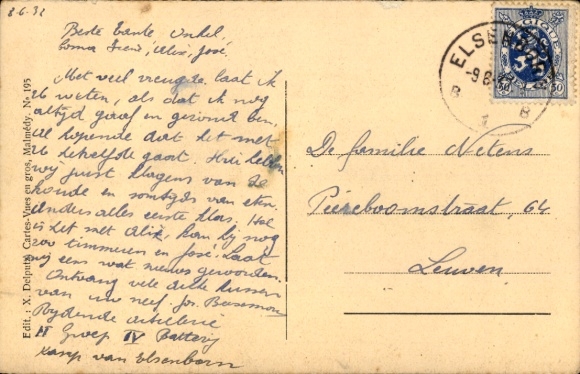 8-6-32
Beste tante, onkel,
Irène, Alix, José
Met veel vreugde laat ik
U weten, als dat ik nog
altijd gaaf en gezond ben.
al hopende dat het met
U hetzelfde gaat. Hier hebben
wij juist klagens van de
koude en somtijds van eten.
Anders alles eerste klas. Hoe
is het met Alix, kan hij nog
zoo timmeren en José. Laat
mij eens wat nieuws geworden.
Ontvang vele dikke kussen
van uw neef. Jos.
Rijdende artillerie
II Groep IV Batterij
Kamp van Elsenborn
Edit.: X. Delputz, Cartes-Vues en gros, Malmédy. No 195
BELGIQUE
50 50
ELSENBORN
B 1 B
De familie Netens
Pereboomstraat, 64
Leuven